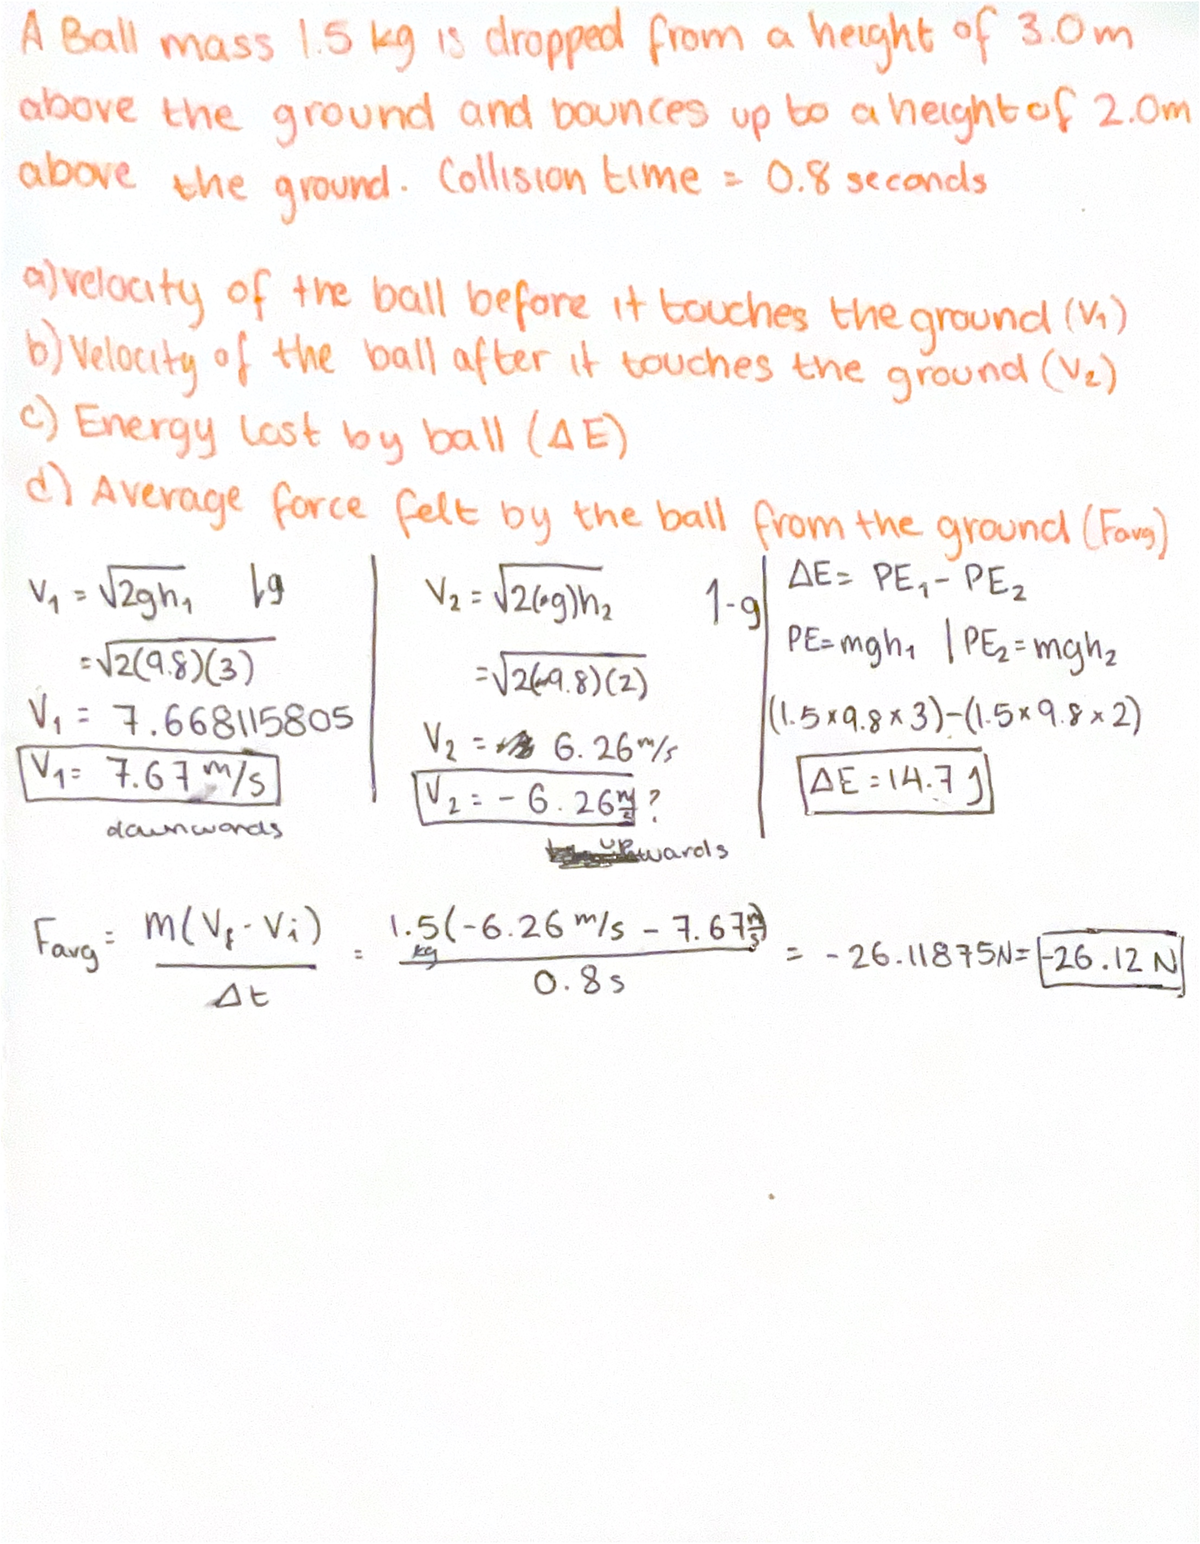 A Ball mass 1.5 kg is dropped from a height of 3.0m
above the ground and bounces up to a height of 2.0m
above the ground. Collision time = 0.8 seconds
a) velocity of the ball before it touches the ground (V₁)
b) Velocity of the ball after it touches the ground (V₂)
c) Energy lost by ball (ΔE)
d) Average force felt by the ball from the ground (Favg)
V₁ = √2gh₁ ↓g
= √2(9.8)(3)
V₁ = 7.668115805
V₁ = 7.67 m/s
downwards
V₂ = √2(-g)h₂ ↑-g
= √2(-9.8)(2)
V₂ = 6.26 m/s
V₂ = -6.26 m/s ?
upwards
ΔE = PE₁ - PE₂
PE = mgh₁ | PE₂ = mgh₂
(1.5 × 9.8 × 3) - (1.5 × 9.8 × 2)
ΔE = 14.7 J
Favg = m(Vf - Vi) / Δt = 1.5 kg (-6.26 m/s - 7.67 m/s) / 0.8 s = -26.11875N = -26.12 N